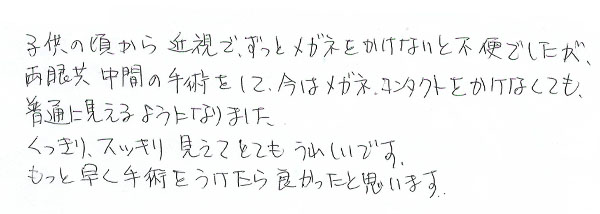 子供の頃から近視で、ずっとメガネをかけないと不便でしたが、
両眼共中間の手術をして、今はメガネ、コンタクトをかけなくても、
普通に見えるようになりました。
くっきり、スッキリ見えてとてもうれしいです。
もっと早く手術をうけたら良かったと思います。